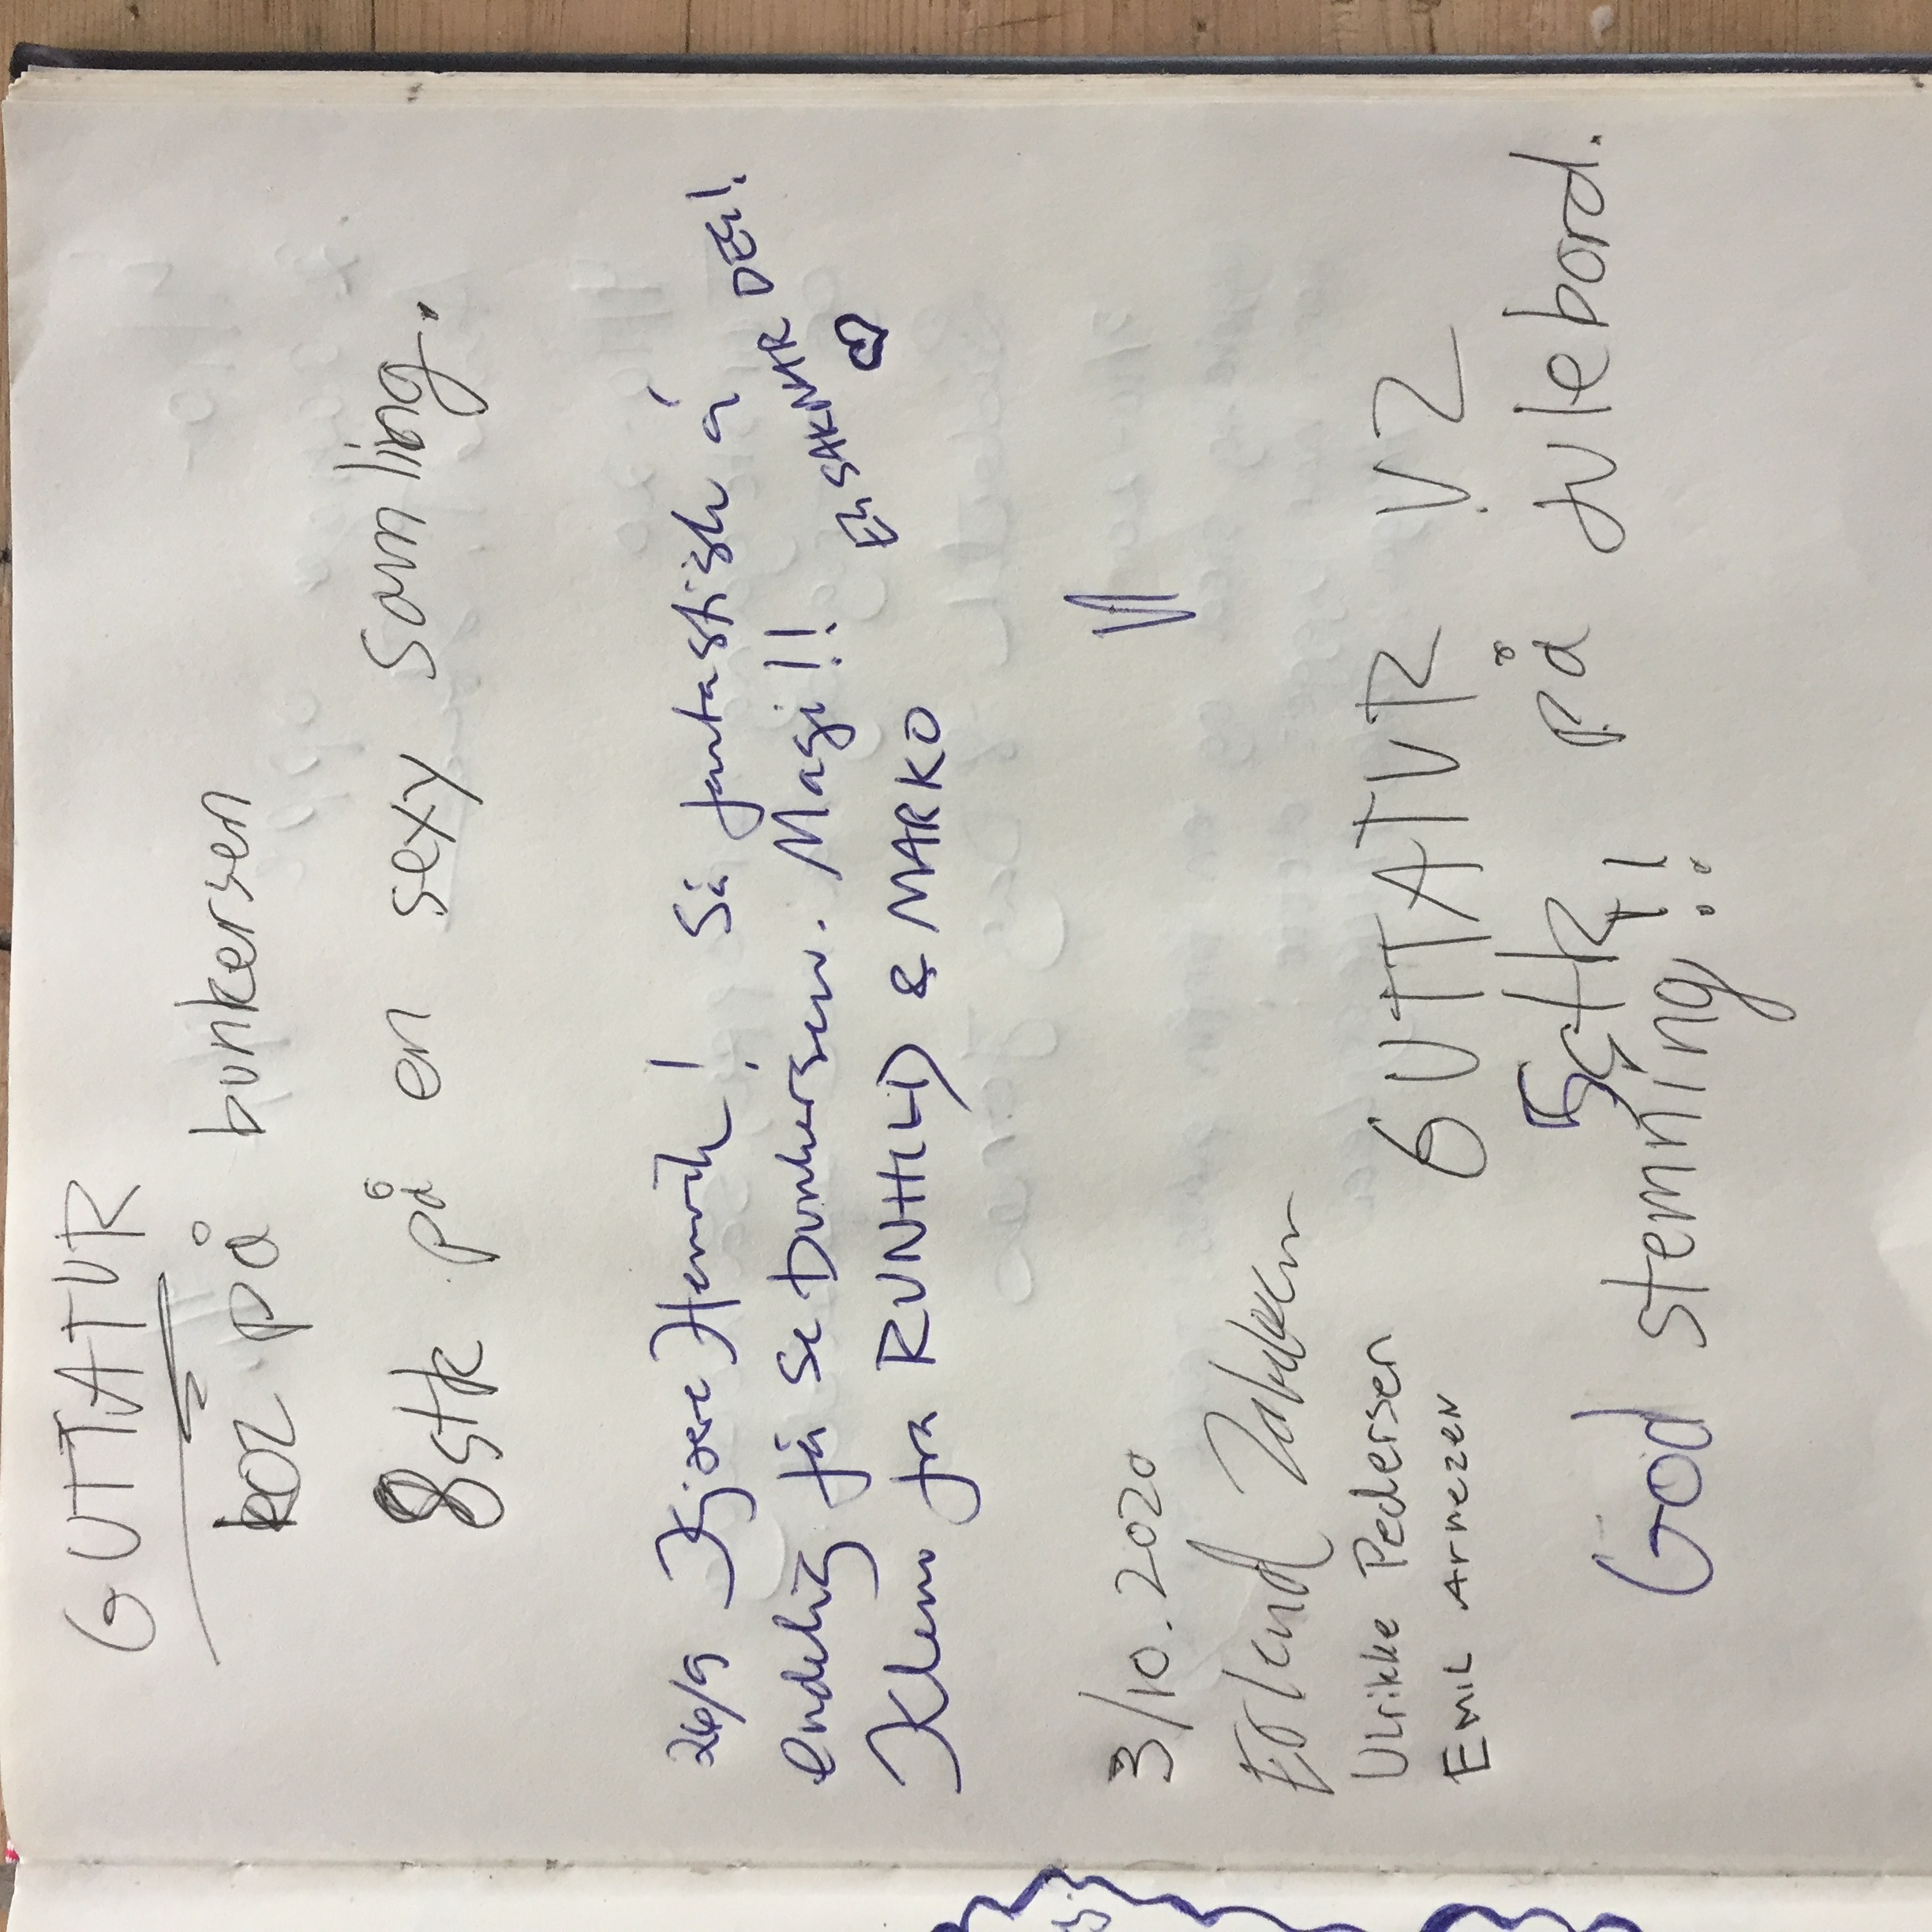 GUTTATUR
koz på bunkersen
8stk på en sexy samling.
26/9 Kjære Henrik! Så fantastisk å
endelig få se bunkersen. Magi!!
EN SAKNAR DEI!
Klem fra RUNHILD & MARKO
3/10.2020
Erlend
Ulrikke Pedersen
EMIL ArNEZEN
GUTTATUR V2
5stk på Julebord.
God stemning!!